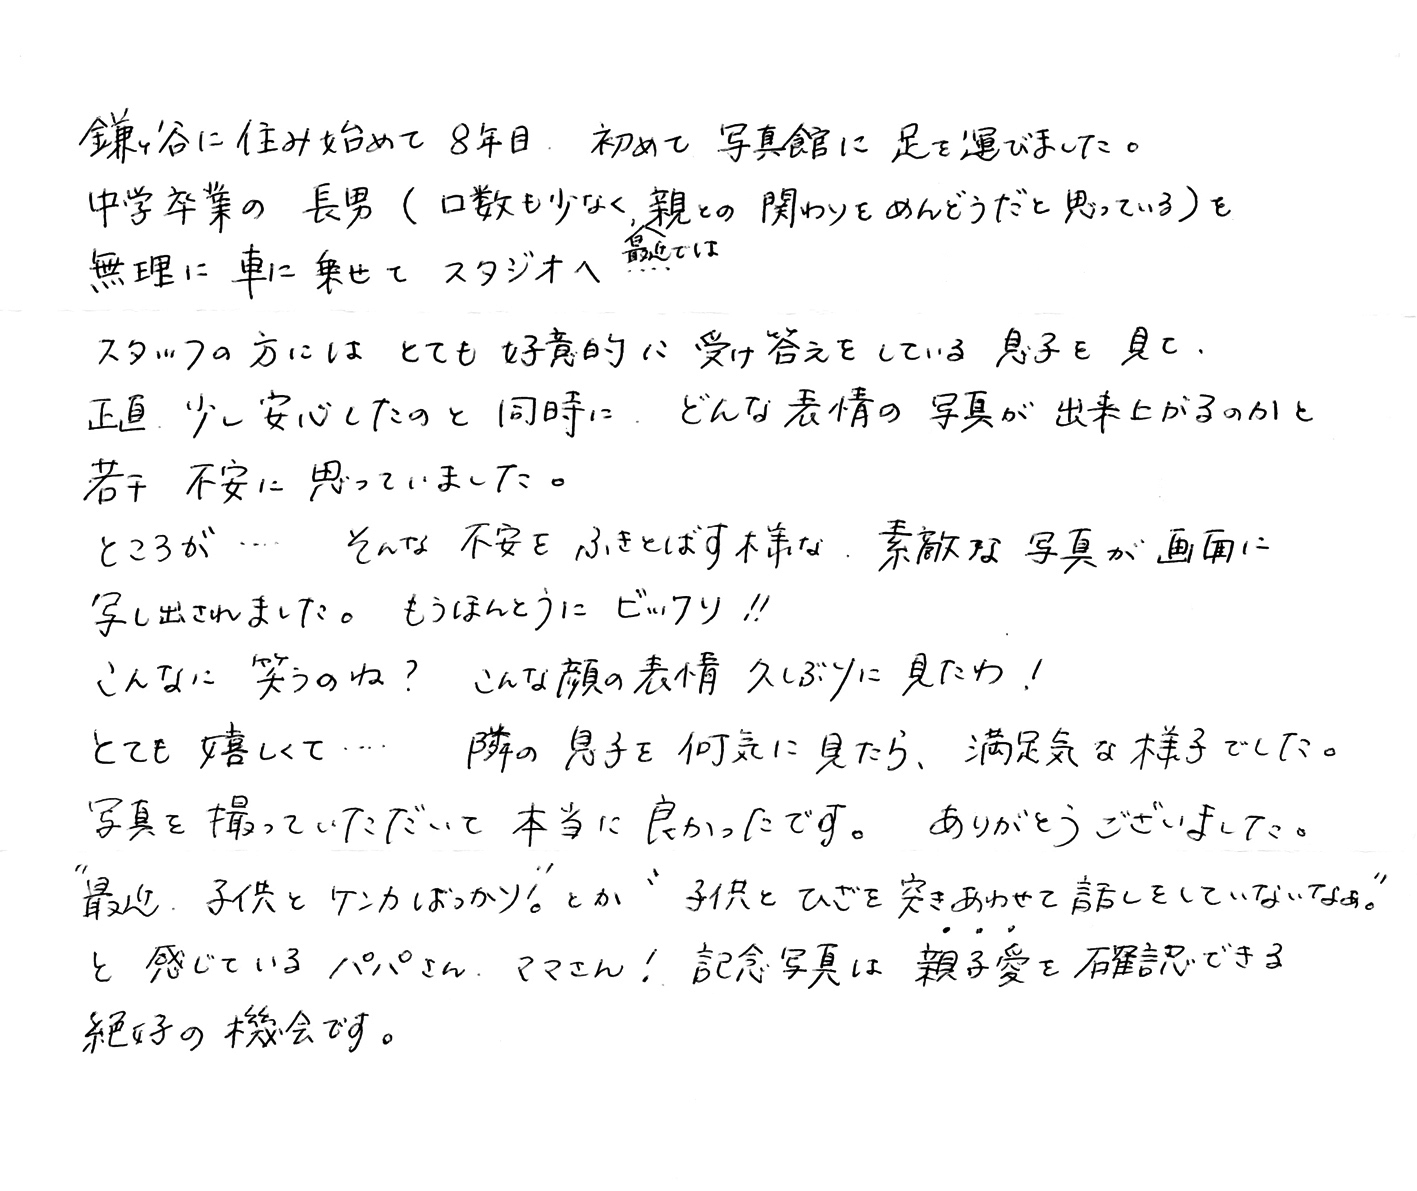 鎌ヶ谷に住み始めて8年目、初めて写真館に足を運びました。
中学卒業の長男(口数も少なく、最近では親との関わりをめんどうだと思っている)を
無理に車に乗せてスタジオへ
スタッフの方にはとても好意的に受け答えをしている息子を見て、
正直、少し安心したのと同時に、どんな表情の写真が出来上がるのかと
若干不安に思っていました。
ところが…… そんな不安をふきとばす様な、素敵な写真が画面に
写し出されました。もうほんとうにビックリ!!
こんなに笑うのね? こんな顔の表情久しぶりに見たわ!
とても嬉しくて…… 隣の息子を何気に見たら、満足気な様子でした。
写真を撮っていただいて本当に良かったです。 ありがとうございました。
"最近、子供とケンカばっかり!"とか"子供とひざを突きあわせて話しをしていないなぁ。"
と感じているパパさん、ママさん! 記念写真は親子愛を確認できる
絶好の機会です。